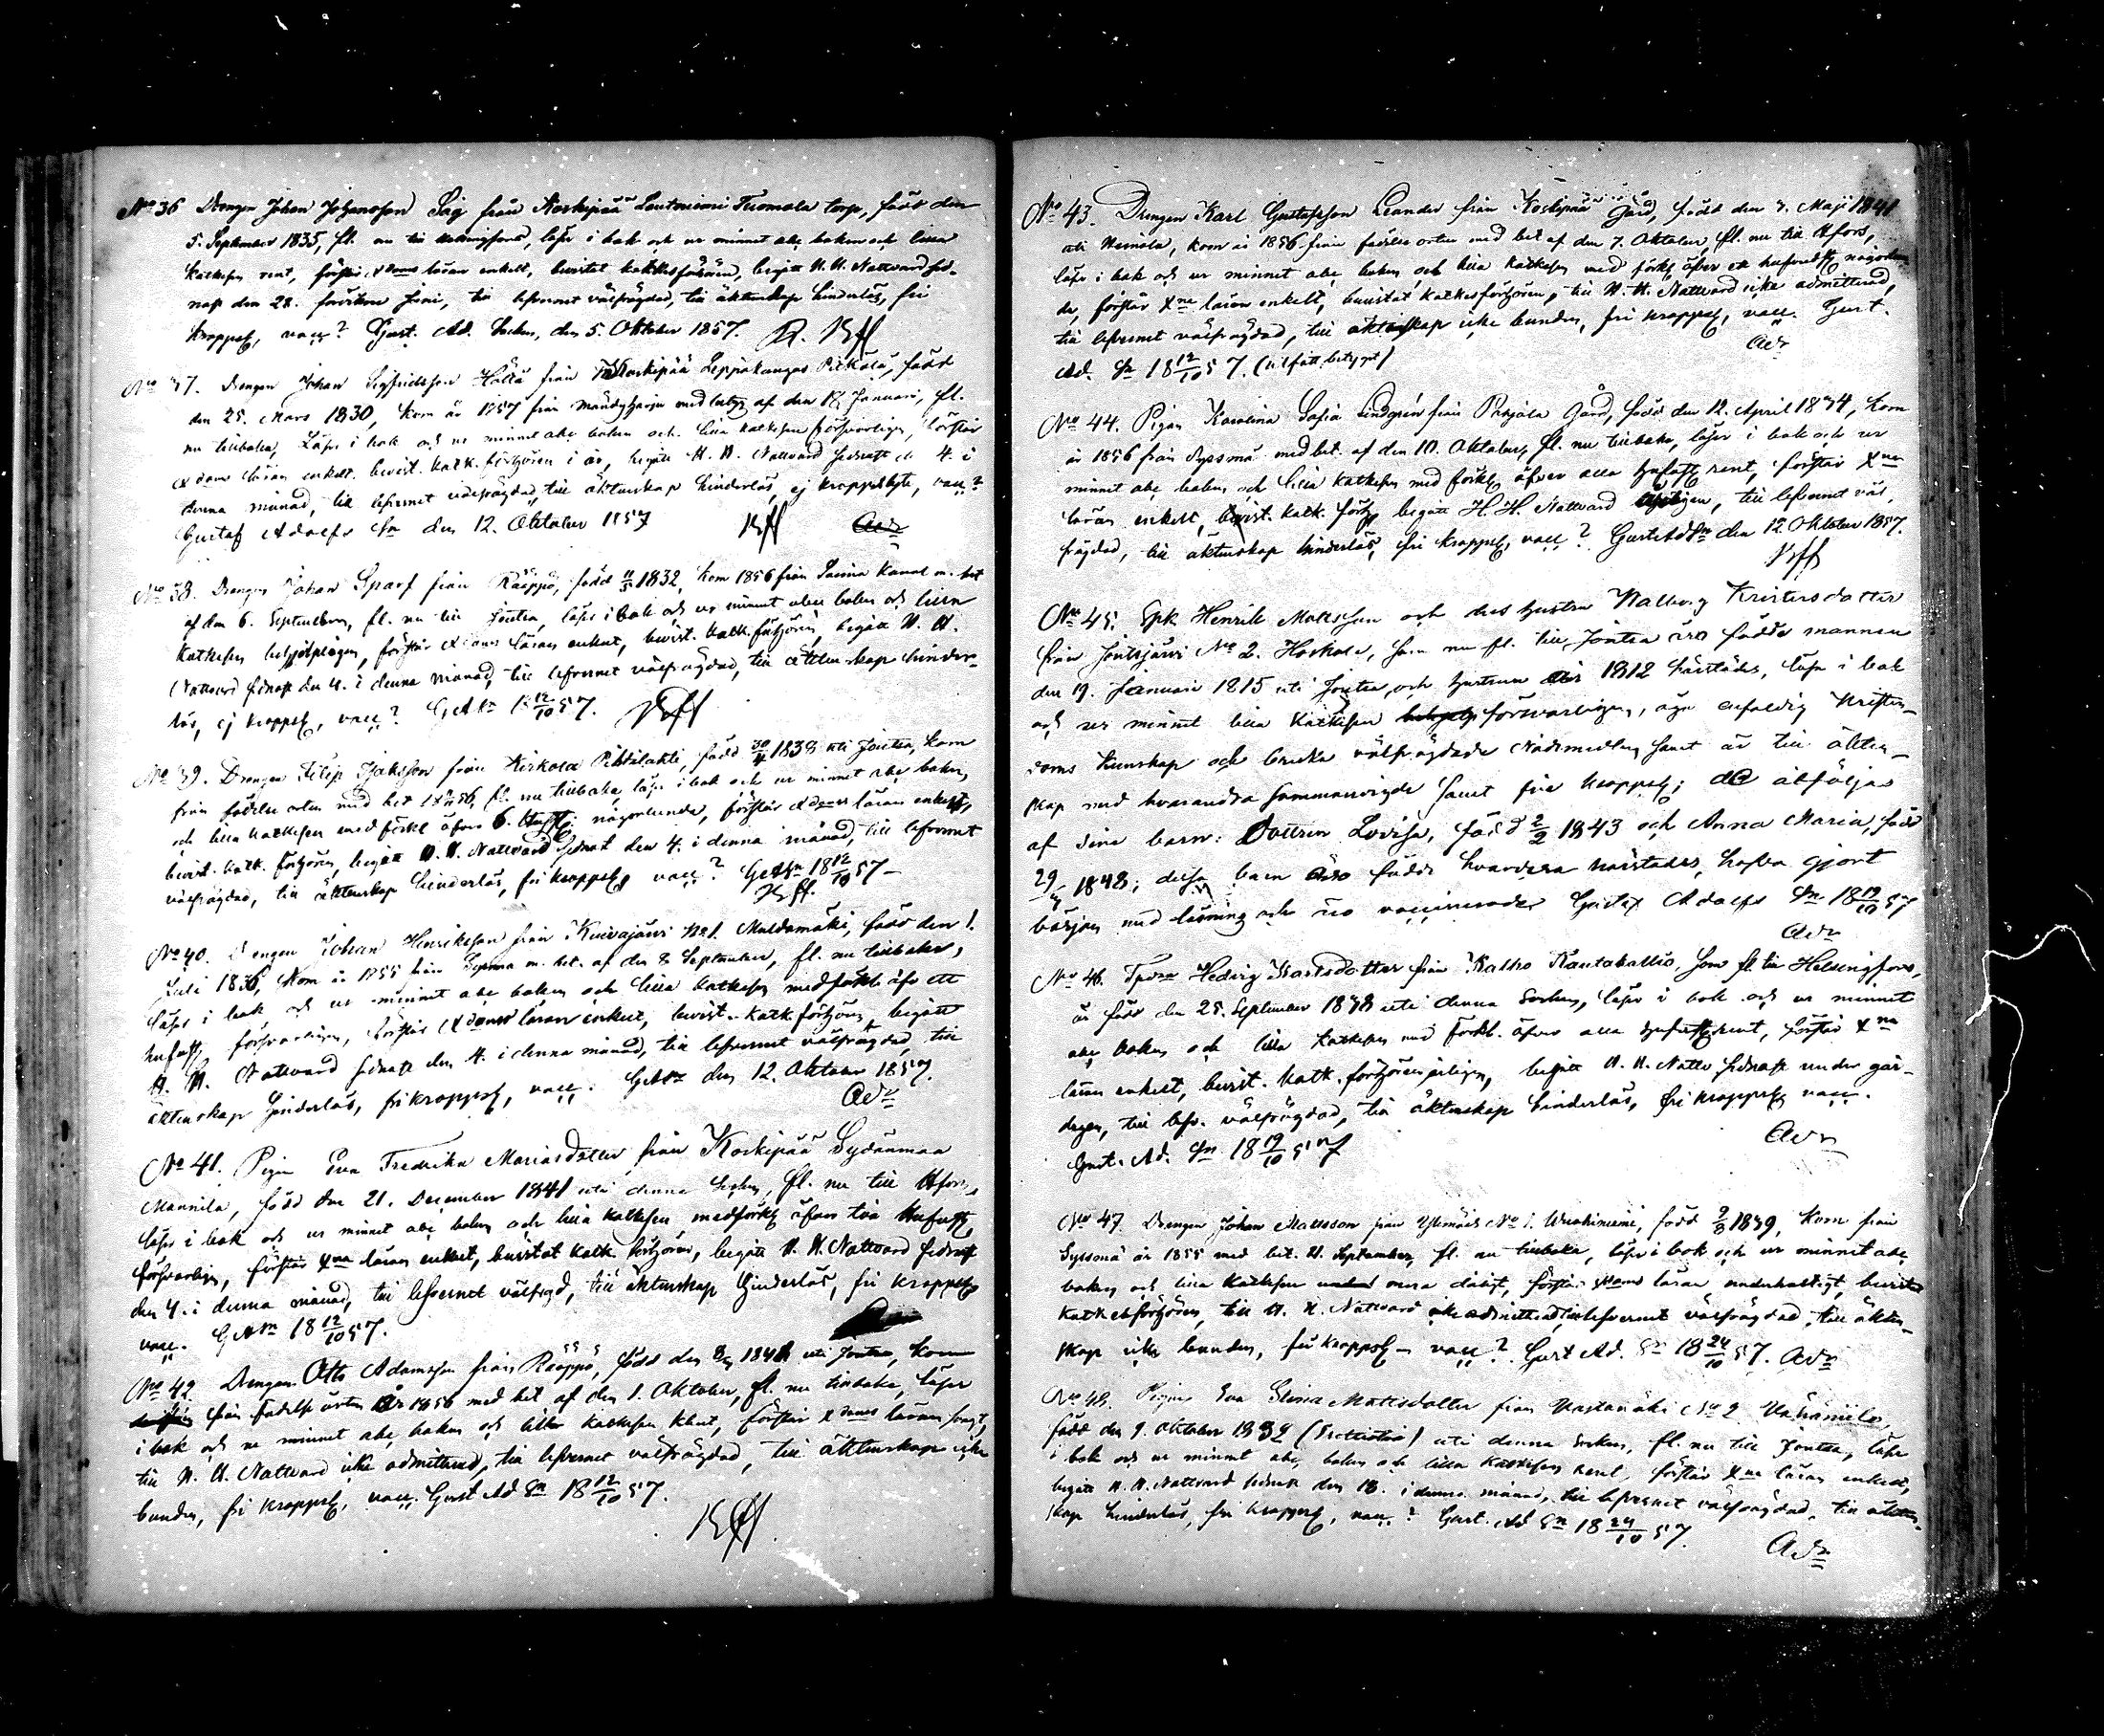 No 36 Drengen Johan Johansson Säg från Koskipää Lautniemi Tuomola torp, född den
5. September 1835, fl. nu till Helsingfors, läser i bok och ur minnet abc boken och lilla
katkesen rent, förstår Xdoms läran enkelt, bevistat katkesförhören, begått H. H. Nattvard sed-
nast den 28. Juni, till lefvernet välfrägdad, till äktenskap hinderlös, fri
kroppsl, vacc? Gust. Ad. Socken, den 5. Oktober 1857.
No 37. Drengen Johan Sigfridsson från Koskipää Leppäkangas född
den 25. Mars 1830, kom år 1857 från Mäntyharju med betyg af den Januari, fl.
nu tillbaka, Läser i bok och ur minnet abc boken och lilla katkesen försvarligen, förstår
Xdoms läran enkelt, bevist. katk. förhören i år, begått H. H. Nattvard sednast d. 4. i
denna månad, till lefvernet välfrägdad, till äktenskap hinderlös, ej kroppslyte, vacc?
Gustaf Adolfs Sn den 12. Oktober 1857
No 38. Drengen Johan Sparf från Rääppö, född 1832, kom 1856 från Saima Kanal m. bet
af den 6. September, fl. nu till Joutsa, läser i bok och ur minnet abc boken och lilla
Katkesen behjelpligen, förstår Xdoms läran enkelt, bevist. katk. förhören, begått H. H.
Nattvard sednast den 4. i denna månad, till lefvernet välfrägdad, till äktenskap hinder-
lös, ej kroppsl, vacc? GASn 18 12/10 57.
No 39. Drengen Filip Isaksson från Kirkola född 1838 uti Joutsa, kom
från födelse orten med bet 1856, fl. nu tillbaka, läser i bok och ur minnet abc boken,
och lilla katkesen med förkl öfver 6. hufst. någorlunda, förstår Xdoms läran enkelt,
bevist. katk. förhören, begått H. H. Nattvard sednast den 4. i denna månad, till lefvernet
välfrägdad, till äktenskap hinderlös, fri kroppsl, vacc? GASn 18 12/10 57
No 40. Drengen Johan Henriksson från Kuivajärvi No 1. Muldamäki, född den 1.
Juli 1836, kom år 1855 från m. bet. af den 8 September, fl. nu tillbaka,
läser i bok och ur minnet abc boken och lilla katkesen med förkl. öfv ett
hufst, försvarligen, förstår Xdoms läran enkelt, bevist. katk förhören, begått
H. H. Nattvard sednast den 4. i denna månad, till lefvernet välfrägdad, till
äktenskap hinderlös, fri kroppsl, vacc. GASn den 12. Oktober 1857.
No 41. Pigan Eva Fredrika Mariasdotter från Koskipää Sydänmaa
Mannila, född den 21. December 1841 uti denna Socken, fl. nu till Hfors,
läser i bok och ur minnet abc boken och lilla katkesen med förkl öfver två hufvst,
försvarligen, förstår Xna läran enkelt, bevistat katk förhören, begått H. H. Nattvard sednast
den 4. i denna månad, till lefvernet välfrägd, till äktenskap hinderlös, fri kroppsl
vacc. GASn 18 12/10 57.
No 42. Drengen Otto Adamsson från Rääppö, född den uti Joutsa, kom
från födelse orten År 1856 med bet af den 1. Oktober, fl. nu tillbaka, läser
i bok och ur minnet abc boken och lilla katkesen klent, förstår Xdoms läran svagt,
till H. H. Nattvard icke admitterad, till lefvernet välfrägdad, till äktenskap icke
bunden, fri kroppsl, vacc. Gust Ad Sn 18 12/10 57.
No 43. Drengen Karl Gustafsson Leander från Koskipää Gård, född den 7. Maji 1841
uti Heinola, kom år 1856 från födelse orten med bet af den 7. Oktober, fl. nu till Hfors,
läser i bok och ur minnet abc boken, och lilla katkesen med förkl öfver ett hufvudst, någorlun
da, förstår Xna läran enkelt, bevistat katkesförhören, till H. H. Nattvard icke admitterad,
till lefvernet välfrägdad, till äktenskap icke bunden, fri kroppsl, vacc. Gust.
Ad. Sn 18 12/10 57. (utfått betyget)
No 44. Pigan Karolina Sofia Lindgrén från Gård, född den 12. April 1834, kom
år 1856 från Sysmä med bet. af den 10. Oktober, fl. nu tillbaka, läser i bok och ur
minnet abc boken och lilla katkesen med förkl öfver alla hufst rent, förstår Xna
läran enkelt, bevist. katk. förh, begått H. H. Nattvard, till lefvernet väl-
frägdad, till äktenskap hinderlös, fri kroppsl, vacc? Gust Ad Sn den 12. Oktober 1857.
No 45. Henrik Mattsson och dess hustru Valborg Kristersdotter
från Joutsjärvi No 2. Hoskola, som nu fl. till Joutsa äro födde mannen
den 19. Januari 1815 uti Joutsa, och hustrun år 1812 härstädes, läsa i bok
och ur minnet lilla katkesen försvarligen, äga enfaldig Kristen-
doms kunskap och bruka välfrägdade Nådemedlen samt är till äkten-
skap med hvarandra sammanvigde samt fria kroppsl; åtföljas
af sina barn: Dottren Lovisa, född 2/2 1843 och Anna Maria, född
1848; dessa barn äro födde hvardera härstädes, hafva gjort
början med läsning och äro vaccinerade Gustaf Adolfs Sn 18 19/10 57
No 46. Hedvig Karlsdotter från Kalho Rautakallio, som fl. till Helsingfors,
är född den 25. September 1838 uti denna Socken, läser i bok och ur minnet
abc boken och lilla katkesen med förkl. öfver alla hufst rent, förstår Xna
läran enkelt, bevist. katk. förhören årligen, begått H. H. Nattv sednast under går-
dagen, till lefv. välfrägdad, till äktenskap hinderlös, fri kroppsl, vacc.
Gust. Ad. Sn 18 19/10 57
No 47. Drengen Johan Mattsson från No 1. född 1839, kom från
Sysmä år 1855 med bet. 21. September, fl. nu tillbaka, läser i bok och ur minnet abc
boken och lilla katkesen mera dåligt, förstår Xdoms läran underhaltigt, bevistat
katkesförhören, till H. H. Nattvard icke admitterad, till lefvernet välfrägdad, till äkten-
skap icke bunden, fri kroppsl, vacc? Gust Ad. Sn 18 24/10 57.
No 48. Pigan Eva Stina Mattsdotter från No 2
född den 9. Oktober 1832 uti denna Socken, fl. nu till Joutsa, läser
i bok och ur minnet abc boken och lilla katkesen rent, förstår Xna läran enkelt,
begått H. H. Nattvard sednast den 18. i denna månad, till lefvernet välfrägdad, till äkten-
skap hinderlös, fri kroppsl, vacc? Gust. Ad Sn 18 24/10 57.